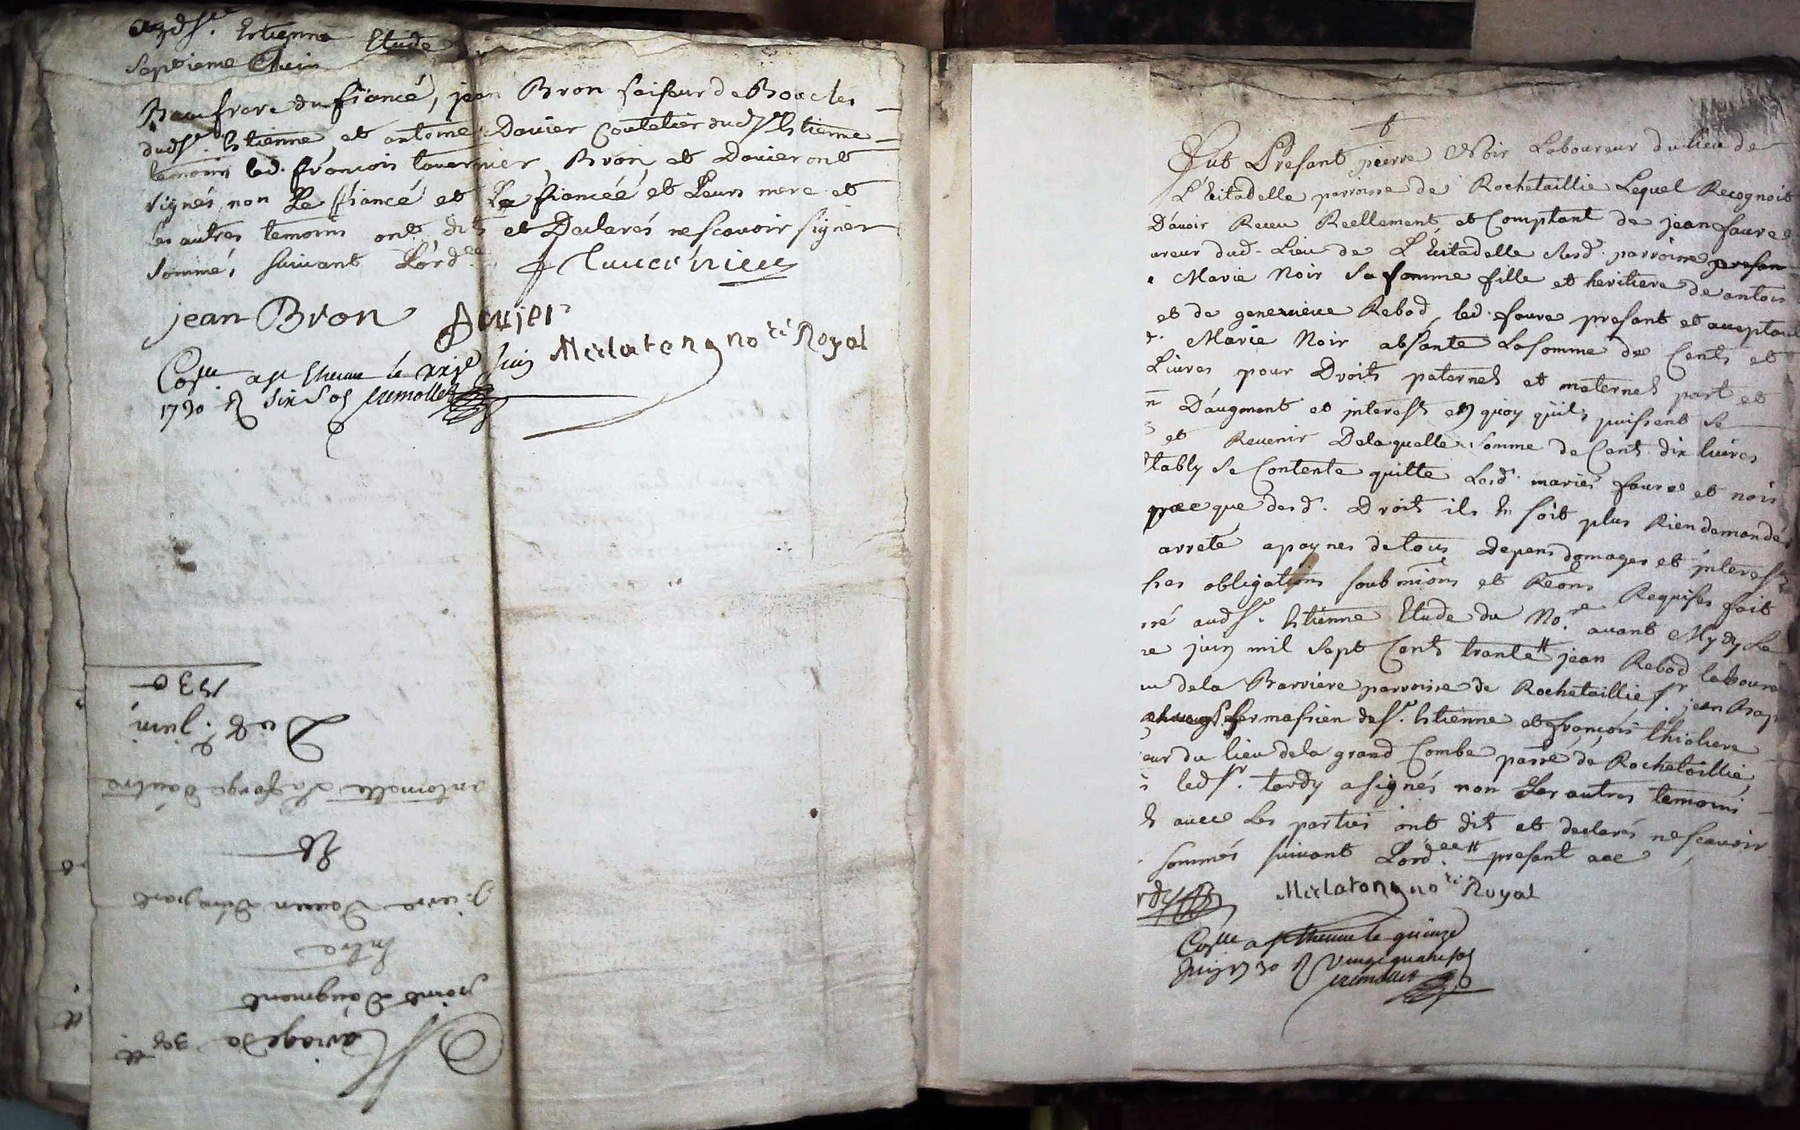 audSt. Estienne Etude
Septieme Juin
Beaufrere du fiancé, jean Bron faiseur de Boucles
dudSt Estienne et antoine Davier Coutelier dudSt Estienne
temoins led. françois tavernier, Bron, et Davier ont
signés non Le fiancé et La fiancéé et Leurs mere et
les autres temoins ont dit et Declarés nescavoir signer
sommés suivant L'ord.ce
jean Bron
Merlaton no.re Royal
a St Etienne le Juin
1730 R six sols
Mariage de 395 lt
point d'augment
Entre
pierre
Et
antoinette La forge
Du 8e juin
1730
Fut Présant pierre Noir Laboureur du lieu de
L'Eitadelle parroisse de Rochetaillie Lequel Recognoit
D'avoir Receu Reellement et Comptant de jean faure
ureur dud. Lieu de L'Eitadelle susd. parroisse
Marie Noir Sa femme fille et heritiere de antoi
et de genevieve Rebod, led. faure presant et acceptant
Marie Noir absante La somme de Cents et
Livres pour Droits paternels et maternels part et
D'augment et interest en quoy qu'ils puissent se
et Revenir De laquelle somme de Cent dix livres
tably se Contente quitte Lesd. mariés faure et noir
pacte que desd. Droits il n'en soit plus Rien demandé
arreté a paynes de tous depens domages et interest
ses obligations soubmions et Reons Requises fait
sé audSt. Estienne Etude du No.re avant Mydy Le
e juin mil Sept Cents trante jean Rebod laboure
de la Barriere parroisse de Rochetaillie Sr. jean
de St. Estienne et françois thioliere
eur du lieu de la grand Combe parsse de Rochetaillie
ledSr. tardy a signés non Les autres temoins
avec Les parties ont dit et declarés nescavoir
sommés suivant L'ord.ce presant
rdy
Merlaton no.re Royal
a St Etienne le quinze
Juin 1730 R vingt quatre sols